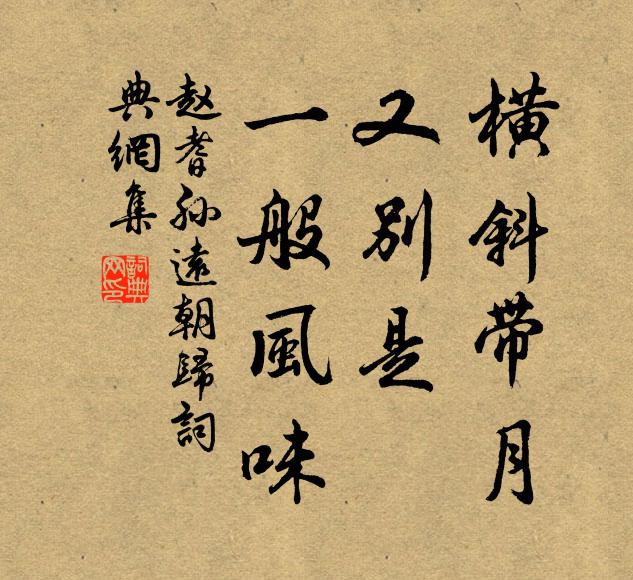 橫斜带月
又別是
一般風味
赵耆孙遠朝歸詞
典網集
詞典
网印